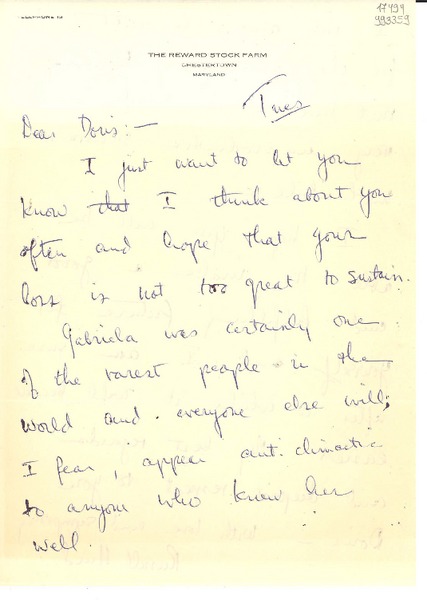 17499
993359
THE REWARD STOCK FARM
CHESTERTOWN
MARYLAND
Tues
Dear Doris:—
I just want to let you
know that I think about you
often and hope that your
loss is not too great to sustain.
Gabriela was certainly one
of the rarest people in the
world and everyone else will,
I fear, appear anti-climactic
to anyone who knew her
well.